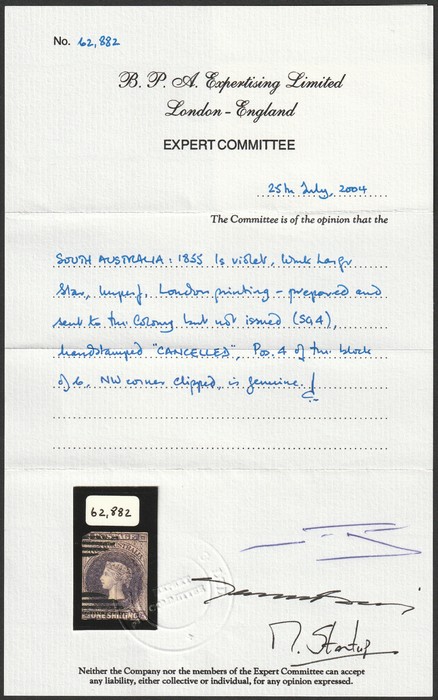 No. 62,882
B. P. A. Expertising Limited
London - England
EXPERT COMMITTEE
25th July, 2004
The Committee is of the opinion that the
SOUTH AUSTRALIA: 1855 1s violet, Wmk Large
Star, Imperf, London printing - prepared and
sent to the Colony but not issued (SG4),
handstamped "CANCELLED", Pos. 4 of the block
of 6, NW corner clipped, is genuine.
62,882
ONE SHILLING
M. Startup
Neither the Company nor the members of the Expert Committee can accept
any liability, either collective or individual, for any opinion expressed.